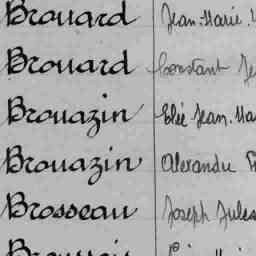 Brouard Jean-Marie
Brouard Constant
Brouazin Elie Jean
Brouazin Alexandre
Brosseau Joseph Jules